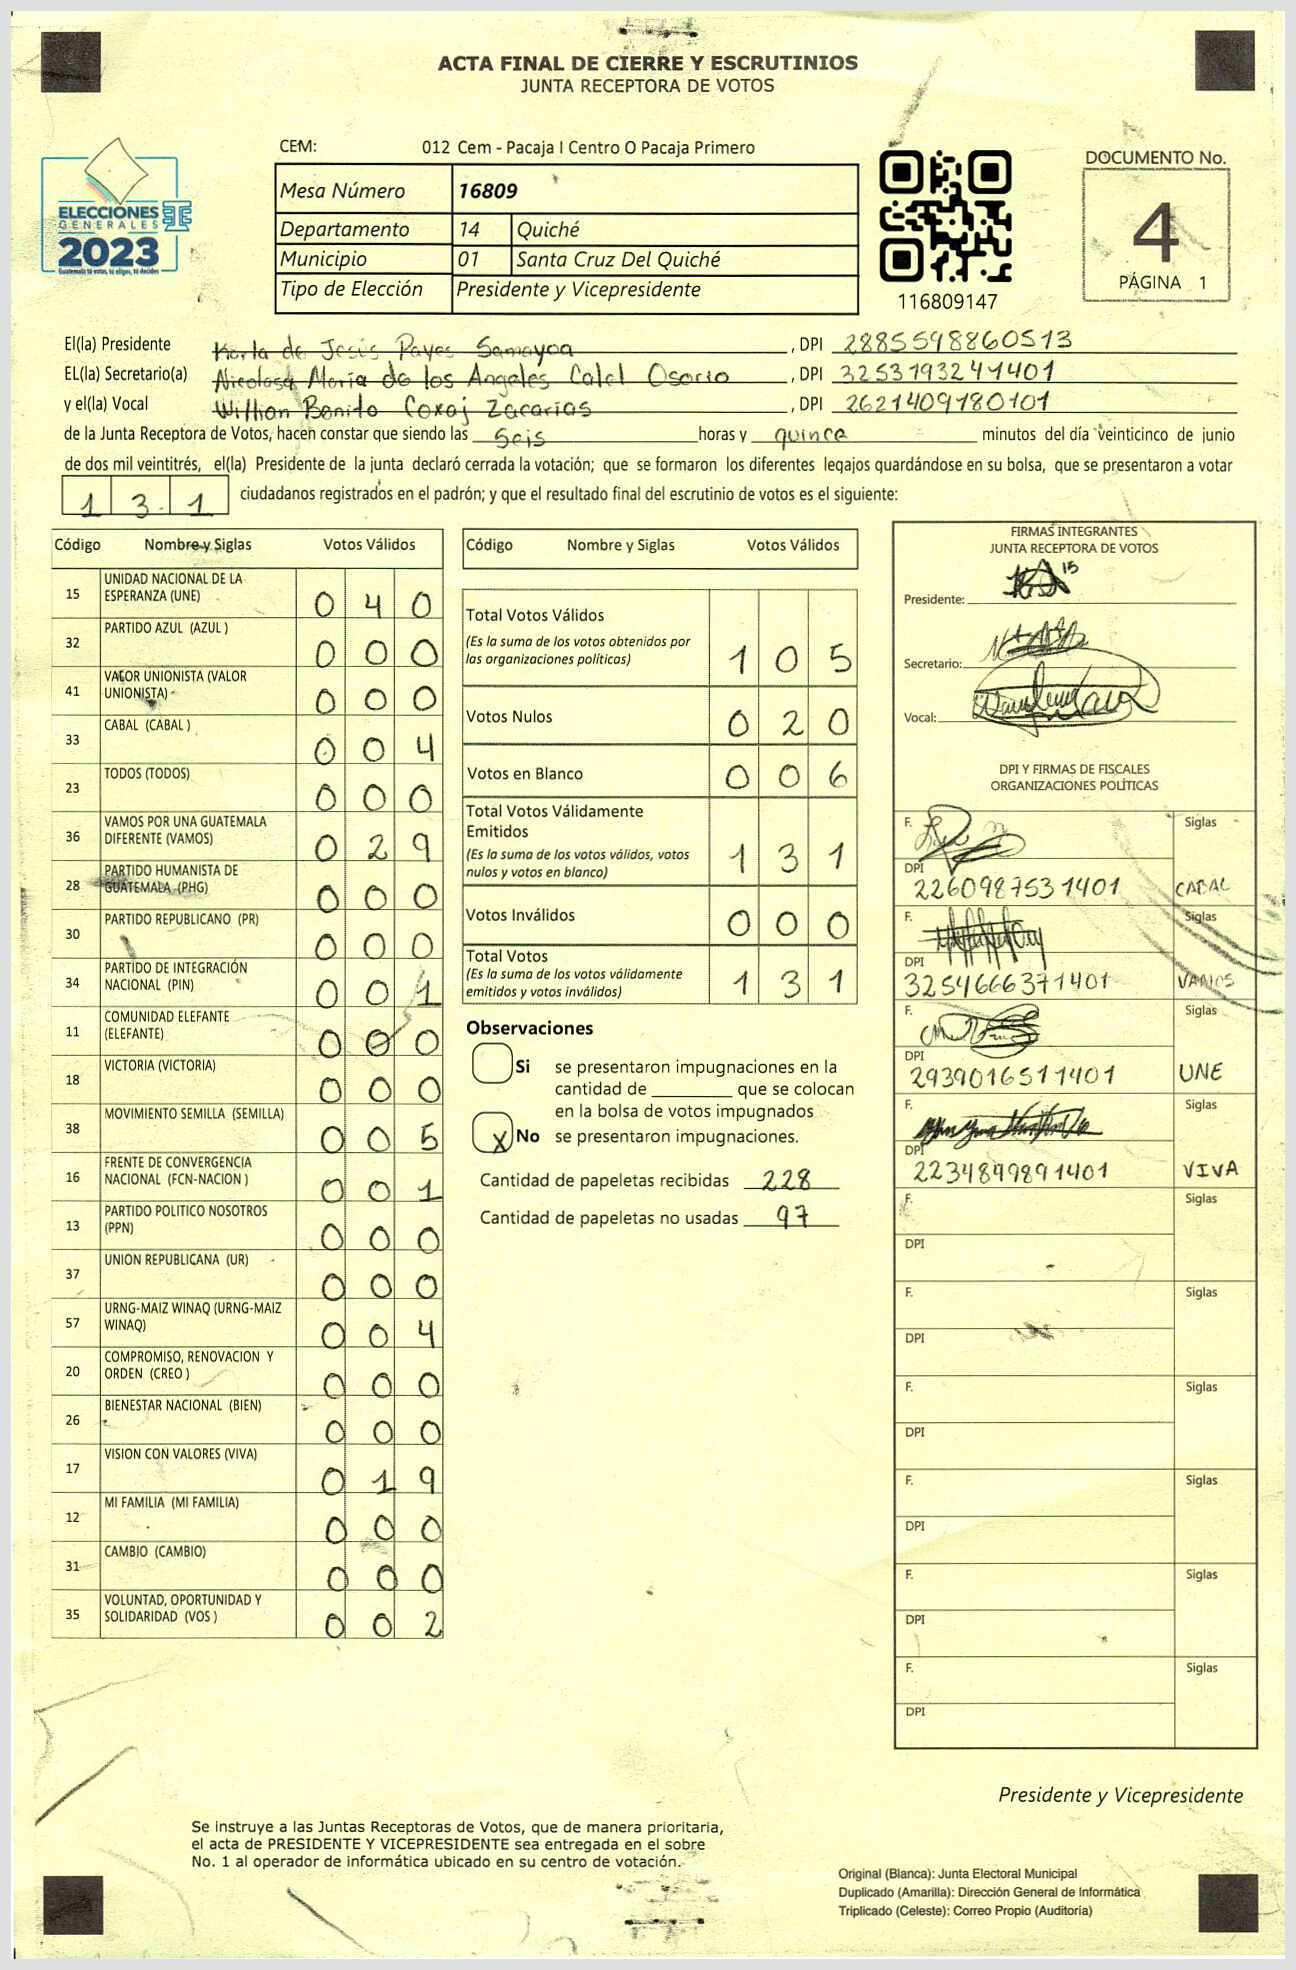 ACTA FINAL DE CIERRE Y ESCRUTINIOS
JUNTA RECEPTORA DE VOTOS
CEM: 012 Cem - Pacaja I Centro O Pacaja Primero
Mesa Número 16809
Departamento 14 Quiché
Municipio 01 Santa Cruz Del Quiché
Tipo de Elección Presidente y Vicepresidente
ELECCIONES
GENERALES
2023
Guatemala tú votas, tú eliges, tú decides
116809147
DOCUMENTO No.
4
PÁGINA 1
El(la) Presidente Karla de Jesús Payes Samayoa , DPI 2885598860513
EL(la) Secretario(a) Nicolasa María de los Angeles Calel Osorio , DPI 3253193241401
y el(la) Vocal Willian Benito Coxaj Zacarias , DPI 2621409180101
de la Junta Receptora de Votos, hacen constar que siendo las Seis horas y quince minutos del día veinticinco de junio
de dos mil veintitrés, el(la) Presidente de la junta declaró cerrada la votación; que se formaron los diferentes legajos guardándose en su bolsa, que se presentaron a votar
1 3 1 ciudadanos registrados en el padrón; y que el resultado final del escrutinio de votos es el siguiente:
Código Nombre y Siglas Votos Válidos
15 UNIDAD NACIONAL DE LA
ESPERANZA (UNE) 0 4 0
32 PARTIDO AZUL (AZUL ) 0 0 0
41 VALOR UNIONISTA (VALOR
UNIONISTA) 0 0 0
33 CABAL (CABAL ) 0 0 4
23 TODOS (TODOS) 0 0 0
36 VAMOS POR UNA GUATEMALA
DIFERENTE (VAMOS) 0 2 9
28 PARTIDO HUMANISTA DE
GUATEMALA (PHG) 0 0 0
30 PARTIDO REPUBLICANO (PR) 0 0 0
34 PARTIDO DE INTEGRACIÓN
NACIONAL (PIN) 0 0 1
11 COMUNIDAD ELEFANTE
(ELEFANTE) 0 0 0
18 VICTORIA (VICTORIA) 0 0 0
38 MOVIMIENTO SEMILLA (SEMILLA) 0 0 5
16 FRENTE DE CONVERGENCIA
NACIONAL (FCN-NACION ) 0 0 1
13 PARTIDO POLITICO NOSOTROS
(PPN) 0 0 0
37 UNION REPUBLICANA (UR) 0 0 0
57 URNG-MAIZ WINAQ (URNG-MAIZ
WINAQ) 0 0 4
20 COMPROMISO, RENOVACION Y
ORDEN (CREO ) 0 0 0
26 BIENESTAR NACIONAL (BIEN) 0 0 0
17 VISION CON VALORES (VIVA) 0 1 9
12 MI FAMILIA (MI FAMILIA) 0 0 0
31 CAMBIO (CAMBIO) 0 0 0
35 VOLUNTAD, OPORTUNIDAD Y
SOLIDARIDAD (VOS ) 0 0 2
Código Nombre y Siglas Votos Válidos
Total Votos Válidos
(Es la suma de los votos obtenidos por
las organizaciones políticas) 1 0 5
Votos Nulos 0 2 0
Votos en Blanco 0 0 6
Total Votos Válidamente
Emitidos
(Es la suma de los votos válidos, votos
nulos y votos en blanco) 1 3 1
Votos Inválidos 0 0 0
Total Votos
(Es la suma de los votos válidamente
emitidos y votos inválidos) 1 3 1
Observaciones
Si se presentaron impugnaciones en la
cantidad de ________ que se colocan
en la bolsa de votos impugnados
X No se presentaron impugnaciones.
Cantidad de papeletas recibidas 228
Cantidad de papeletas no usadas 97
FIRMAS INTEGRANTES
JUNTA RECEPTORA DE VOTOS
Presidente:
Secretario:
Vocal:
DPI Y FIRMAS DE FISCALES
ORGANIZACIONES POLÍTICAS
F. Siglas
DPI
2260987531401 CABAL
F. Siglas
DPI
3254666371401 VAMOS
F. Siglas
DPI
2939016511401 UNE
F. Siglas
DPI
2234899891401 VIVA
F. Siglas
DPI
F. Siglas
DPI
F. Siglas
DPI
F. Siglas
DPI
F. Siglas
DPI
F. Siglas
DPI
Presidente y Vicepresidente
Se instruye a las Juntas Receptoras de Votos, que de manera prioritaria,
el acta de PRESIDENTE Y VICEPRESIDENTE sea entregada en el sobre
No. 1 al operador de informática ubicado en su centro de votación.
Original (Blanca): Junta Electoral Municipal
Duplicado (Amarilla): Dirección General de Informática
Triplicado (Celeste): Correo Propio (Auditoría)